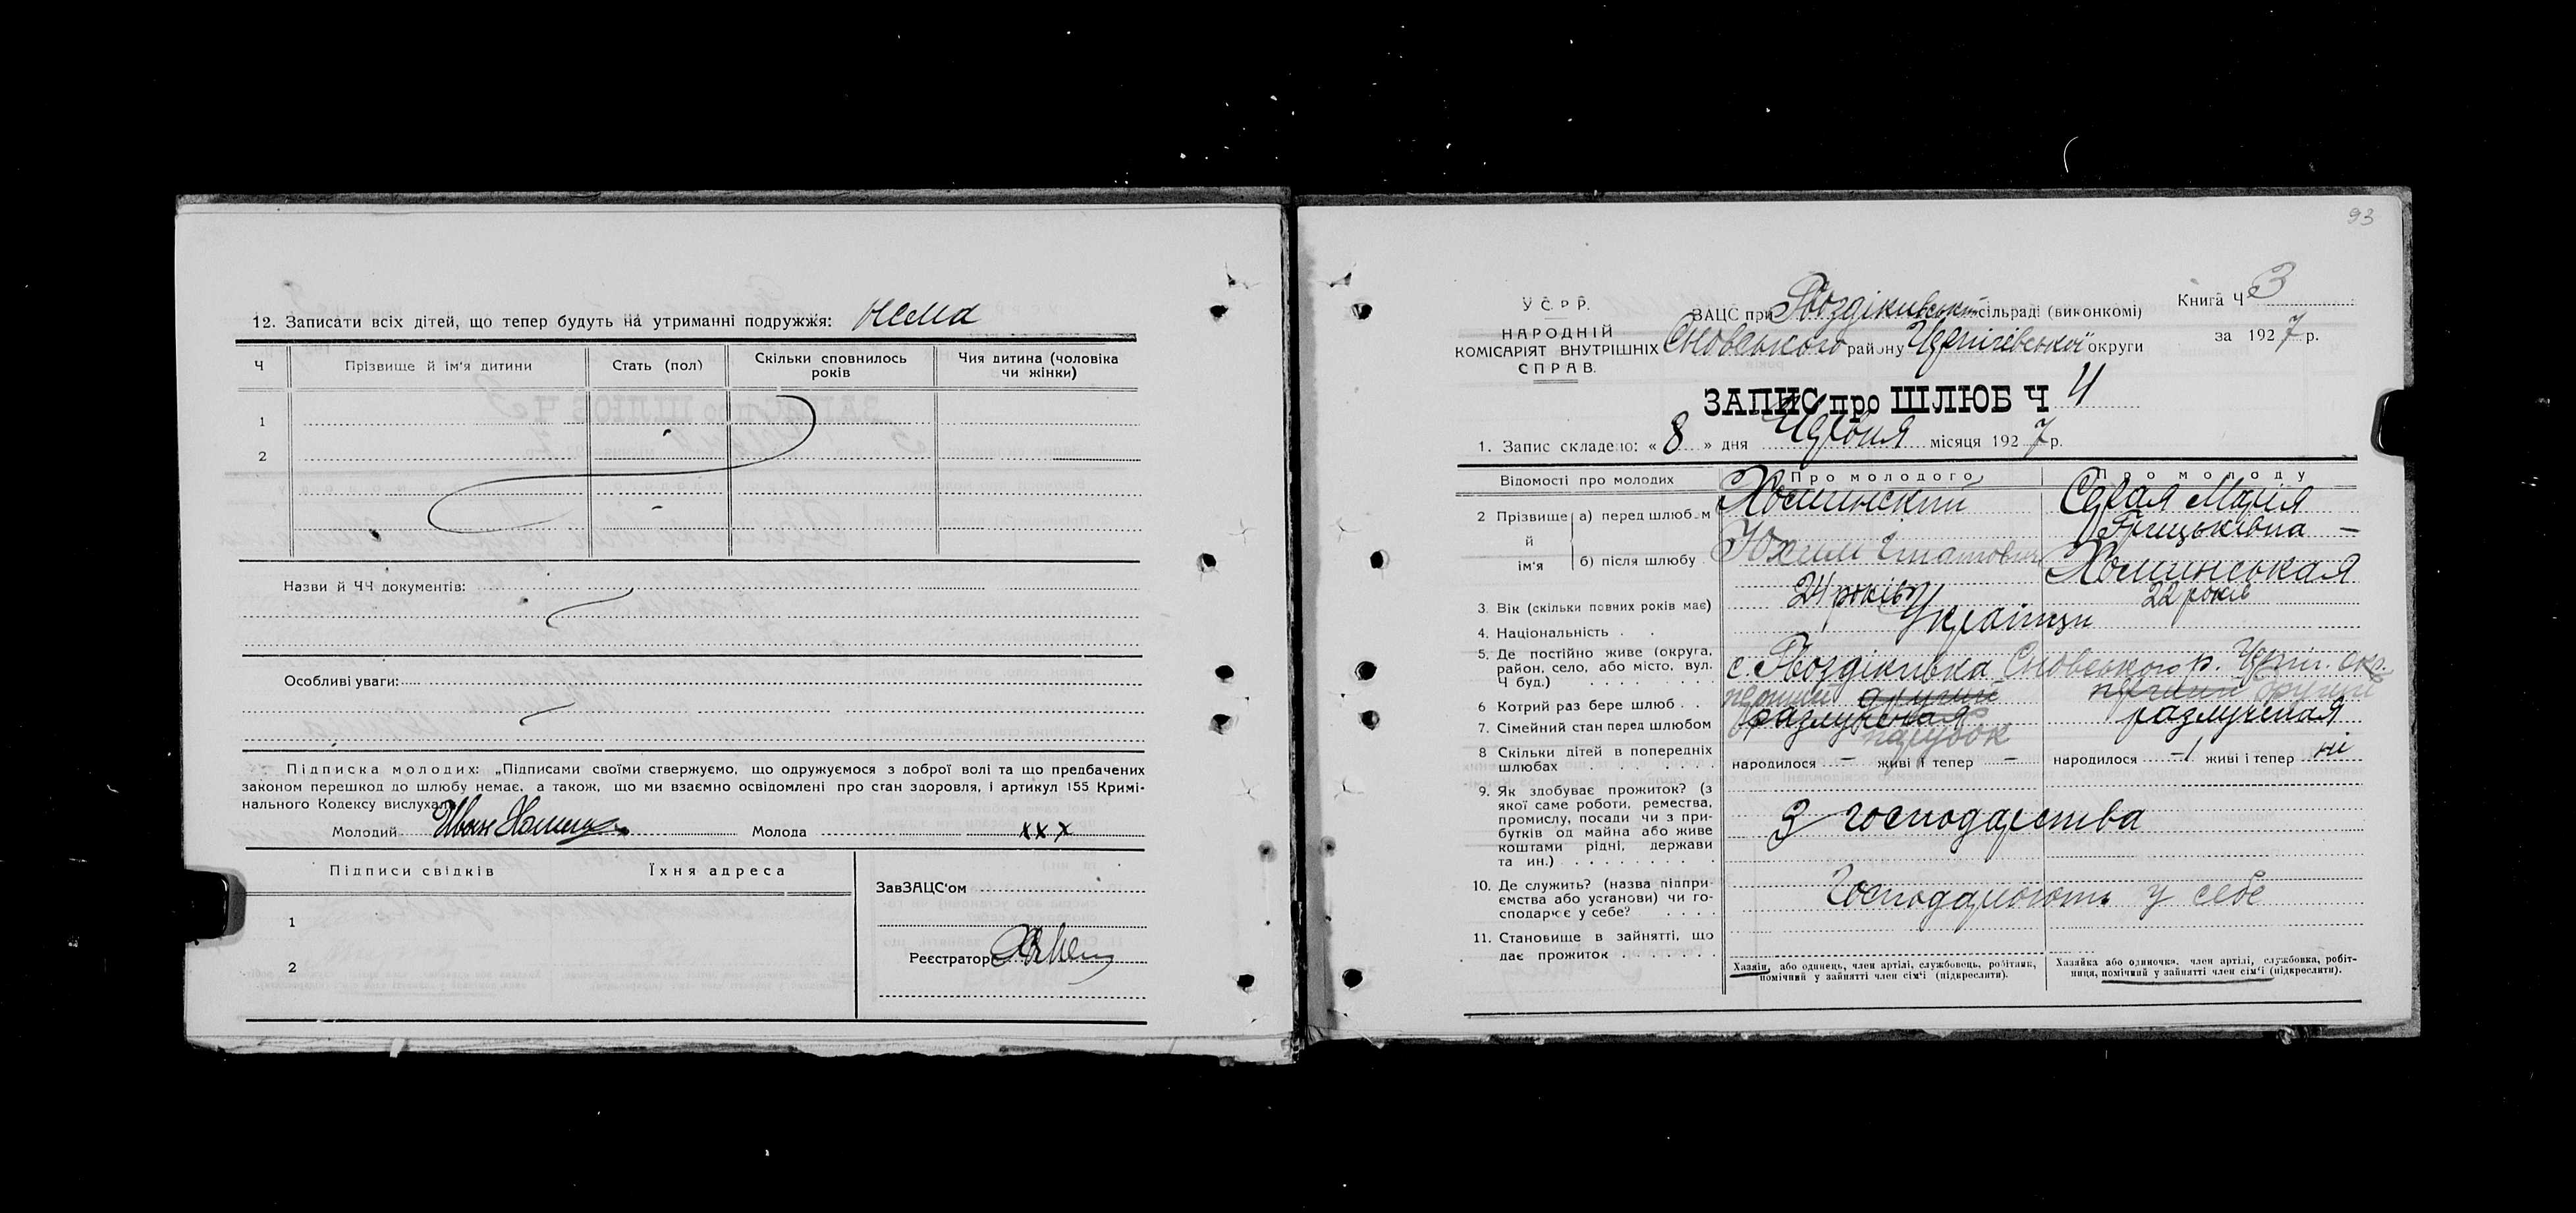 12. Записати всіх дітей, що тепер будуть на утриманні подружжя: нема
Ч
Прізвище й ім'я дитини
Стать (пол)
Скільки сповнилось років
Чия дитина (чоловіка чи жінки)
1
2
Назви й ЧЧ документів:
Особливі уваги:
Підписка молодих: „Підписами своїми стверджуємо, що одружуємося з доброї волі та що предбачених
законом перешкод до шлюбу немає, а також, що ми взаємно освідомлені про стан здоровля, і артикул 155 Кримі-
нального Кодексу вислухали
Молодий Иван
Молода ххх
Підписи свідків
Їхня адреса
1
2
ЗавЗАЦС'ом
Реєстратор
93
У С Р Р.
НАРОДНІЙ
КОМІСАРІЯТ ВНУТРІШНІХ
СПРАВ.
ЗАЦС при Гвоздіківській сільраді (виконкомі)
Сновського району Чернігівської округи
Книга Ч 3
за 1927 р.
ЗАПИС про ШЛЮБ Ч 4
1. Запис складено: « 8 » дня Червня місяця 1927 р.
Відомості про молодих
Про молодого
Про молоду
2 Прізвище й ім'я
а) перед шлюбом
Хоминский
Серая Марія
Грицьківна —
б) після шлюбу
Юхим
Хоминськая
3. Вік (скільки повних років має)
24 років
22 років
4. Національність . .
Українци
5. Де постійно живе (округа,
район, село, або місто, вул.
Ч буд.)
с. Гвоздіківка Сновського р. Черніг. окр.
6 Котрий раз бере шлюб . .
перший другий
перший другий
7. Сімейний стан перед шлюбом
разлученая
парубок
разлученая
8 Скільки дітей в попередніх
шлюбах
народилося — живі і тепер —
народилося —1 живі і тепер ні
9. Як здобуває прожиток? (з
якої саме роботи, ремества,
промислу, посади чи з при-
бутків од майна або живе
коштами рідні, держави
та ин.)
З господарства
10. Де служить? (назва підпри-
ємства або установи) чи го-
сподарює у себе?
Господарюють у себе
11. Становище в зайнятті, що
дає прожиток
Хазяїн, або одинець, член артілі, службовець, робітник,
помічний у зайнятті член сім'ї (підкреслити).
Хазяйка або одиночка, член артілі, службовка, робіт-
ниця, помічний у зайнятті член сім'ї (підкреслити).